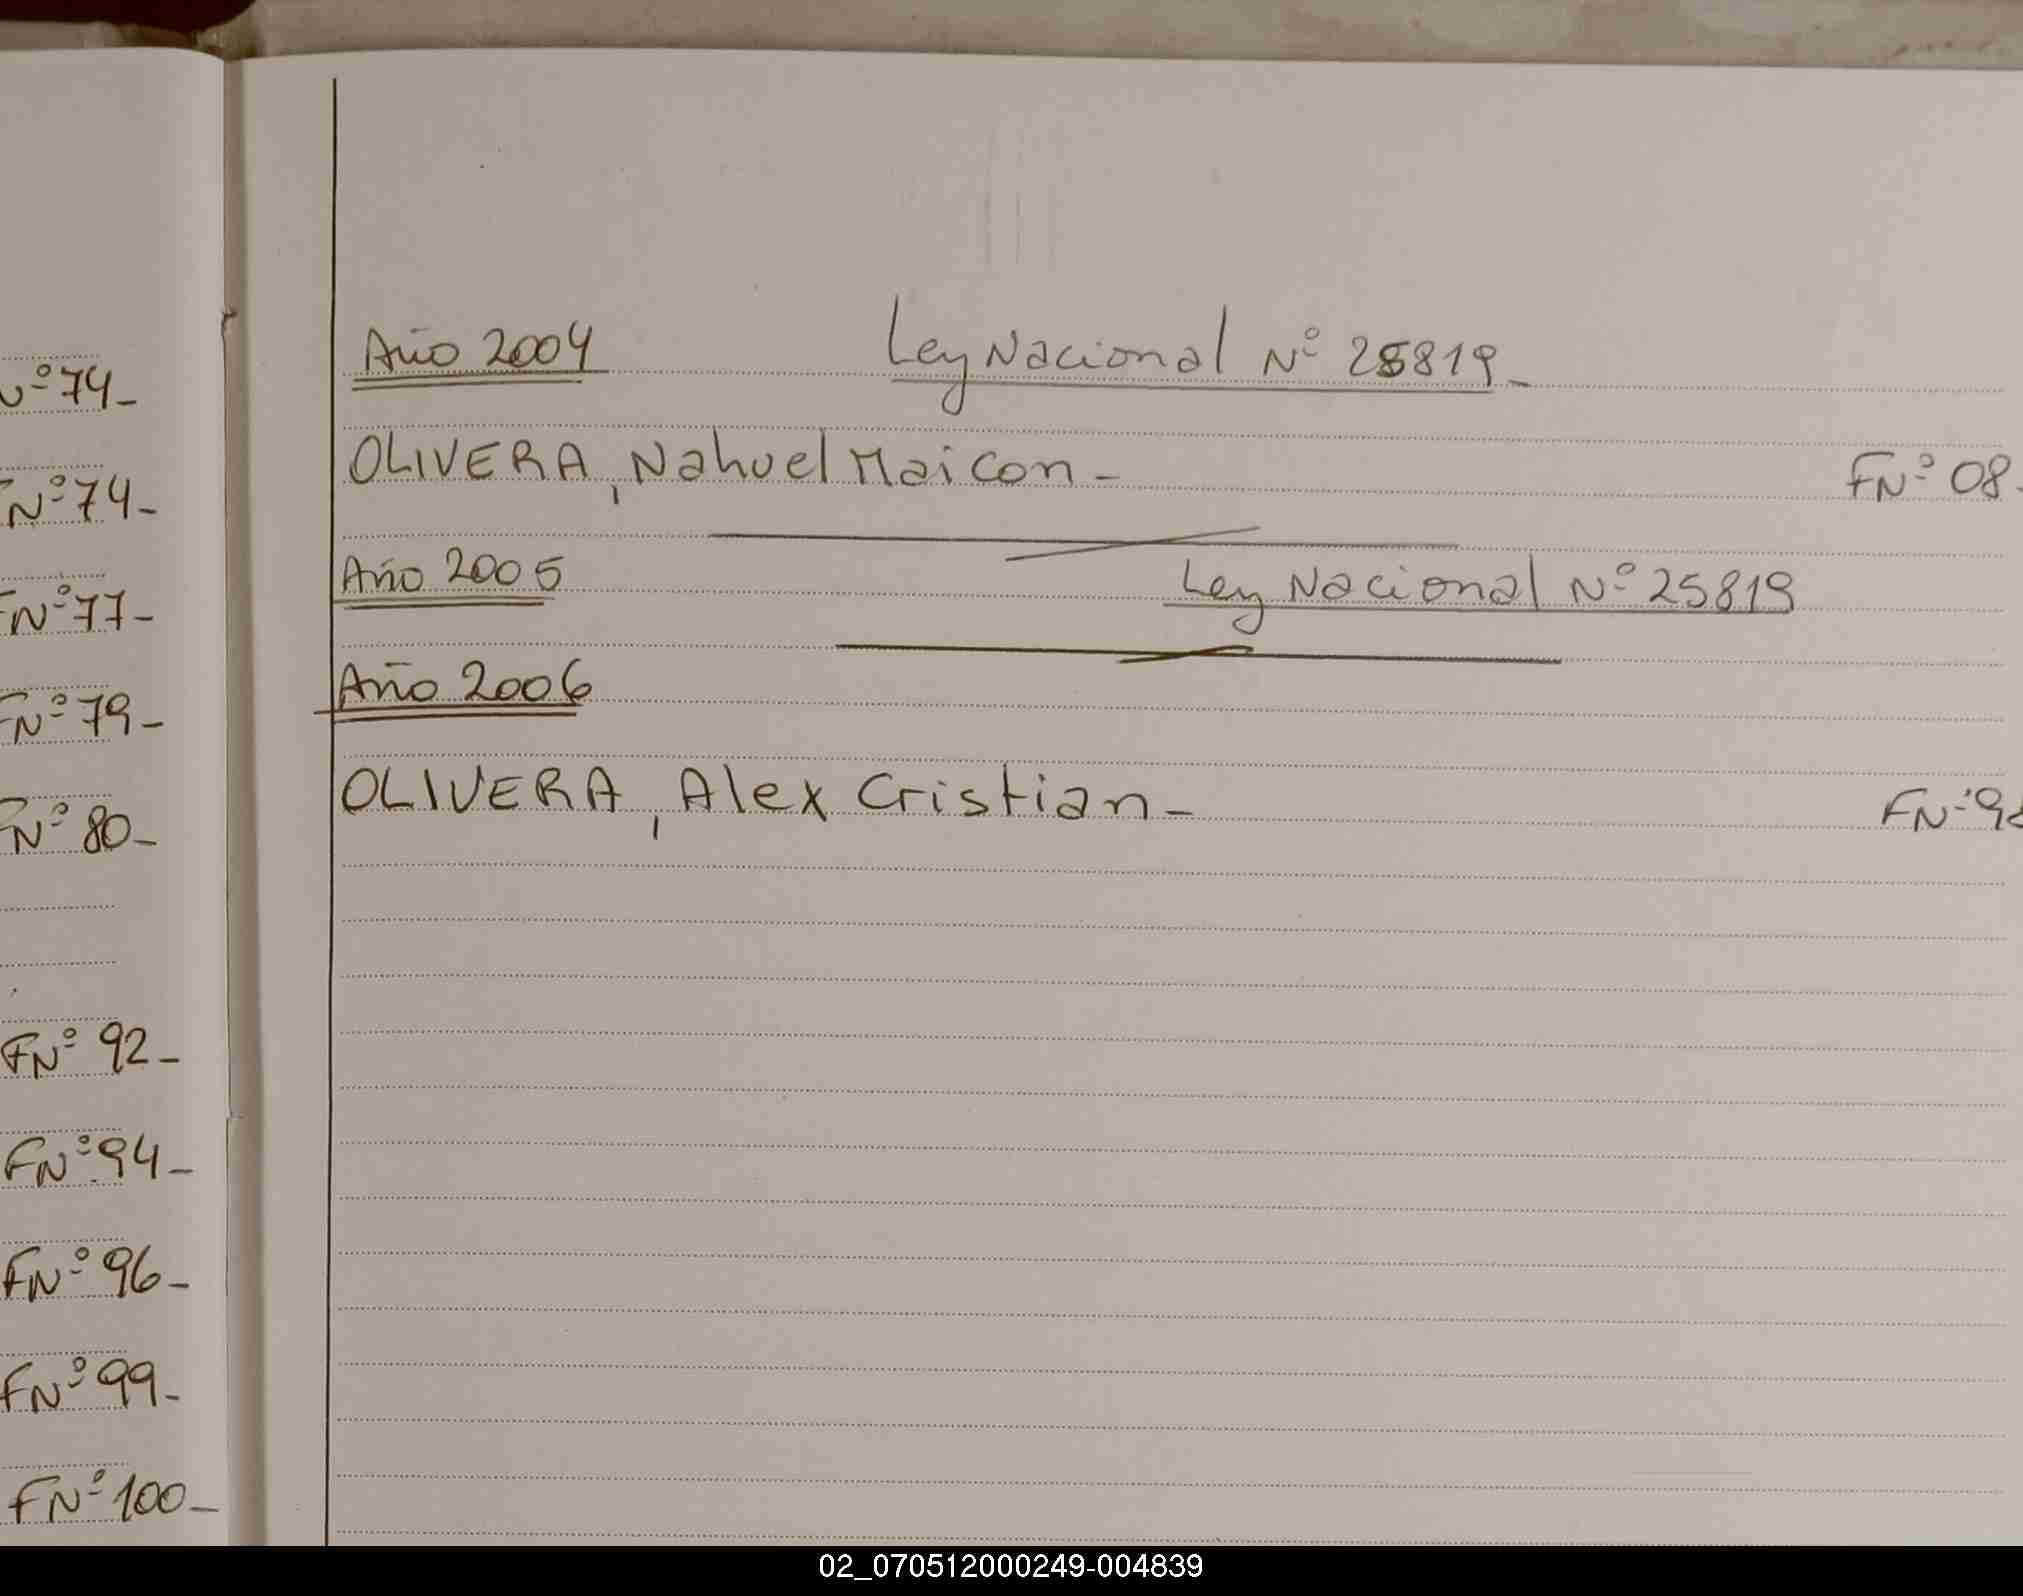 Nº 74_
FNº 74_
FNº 77_
FNº 79_
FNº 80_
FNº 92_
FNº 94_
FNº 96_
FNº 99_
FNº 100_
Año 2004 Ley Nacional Nº 25819_
OLIVERA, Nahuel Maicon_ FNº 08_
Año 2005 Ley Nacional Nº 25819
Año 2006
OLIVERA, Alex Cristian_
02_070512000249-004839